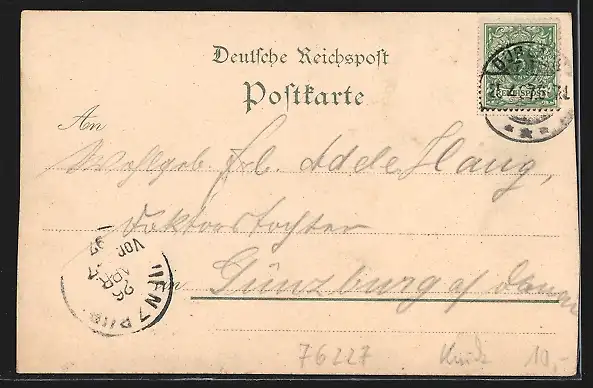 Deutsche Reichspost
Postkarte
An
Wohlgeb. Frl. Adele Haug,
Doktorstochter
in Günzburg a/ Donau
26
APR
97
Vor
76227
10,-